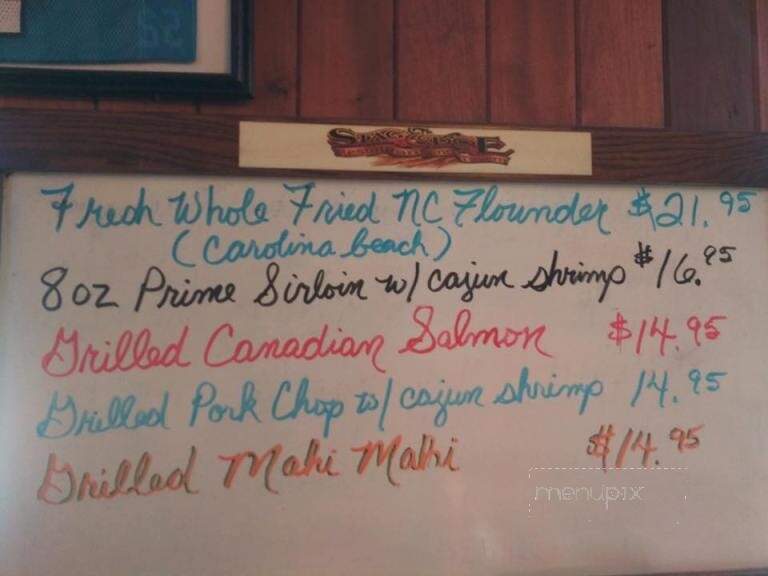 Fresh Whole Fried NC Flounder $21.95
(Carolina beach)
8oz Prime Sirloin w/ cajun shrimp $16.95
Grilled Canadian Salmon $14.95
Grilled Pork Chop w/ cajun shrimp 14.95
Grilled Mahi Mahi $14.95
menupix